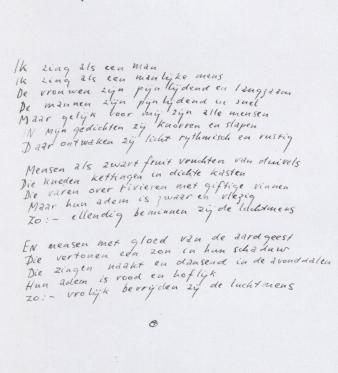 Ik zing als een man
Ik zing als een manlijke mens
De vrouwen zijn pijnlijdend en langzaam
De mannen zijn pijnlijdend en snel
Maar gelijk voor mij zijn alle mensen
IN mijn gedichten zij knorren en slapen
Daar ontwaken zij licht rythmisch en rustig
Mensen als zwart fruit vruchten van duivels
Die kneden kettingen in dichte kasten
Die varen over rivieren met giftige vinnen
Maar hun adem is zwaar en vlezig
Zo:- ellendig beminnen zij de luchtmens
En mensen met gloed van de aardgeest
Die vertonen een zon in hun schaduw
Die zingen naakt en dansend in de avonddalen
Hun adem is rood en hoflijk
Zo:- vrolijk bevrijden zij de luchtmens